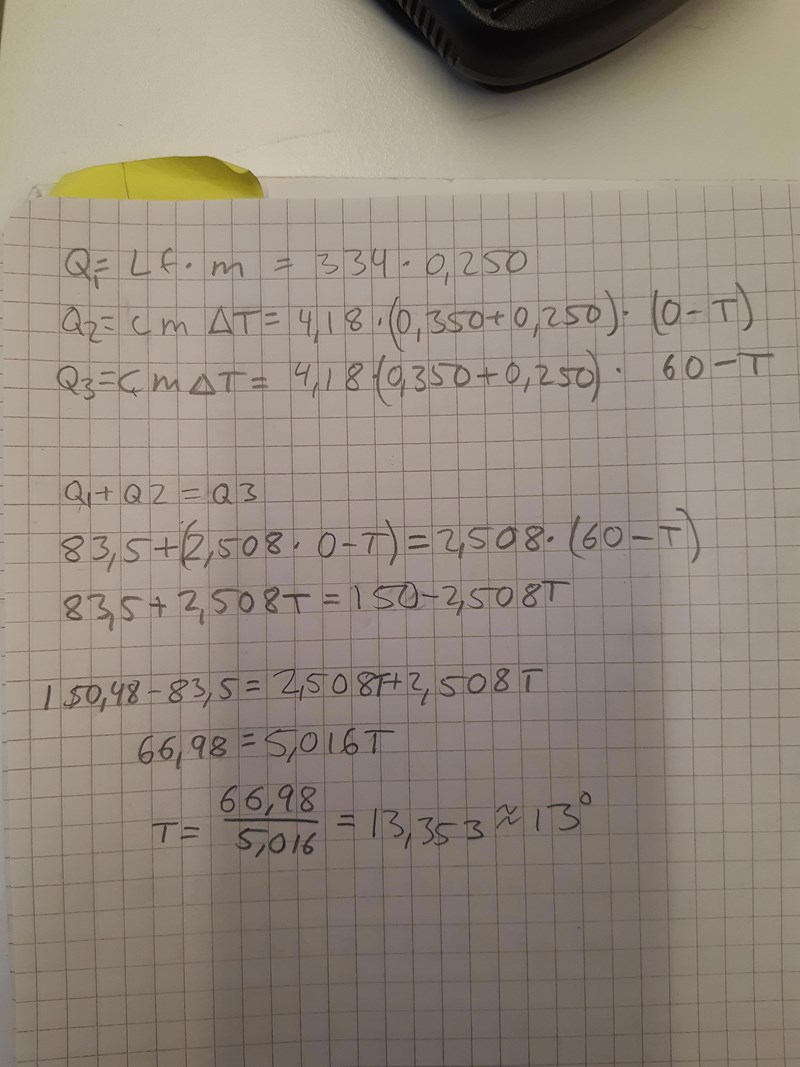 Q₁= Lf · m = 334 · 0,250
Q2= cm ΔT= 4,18 ·(0,350+0,250)· (0-T)
Q3=cmΔT= 4,18·(0,350+0,250)· 60-T
Q₁+Q2=Q3
83,5+(2,508· 0-T)=2,508· (60-T)
83,5+2,508T=150-2,508T
150,48-83,5=2,508T+2,508T
66,98=5,016T
T= 66,98/5,016 = 13,353≈13°